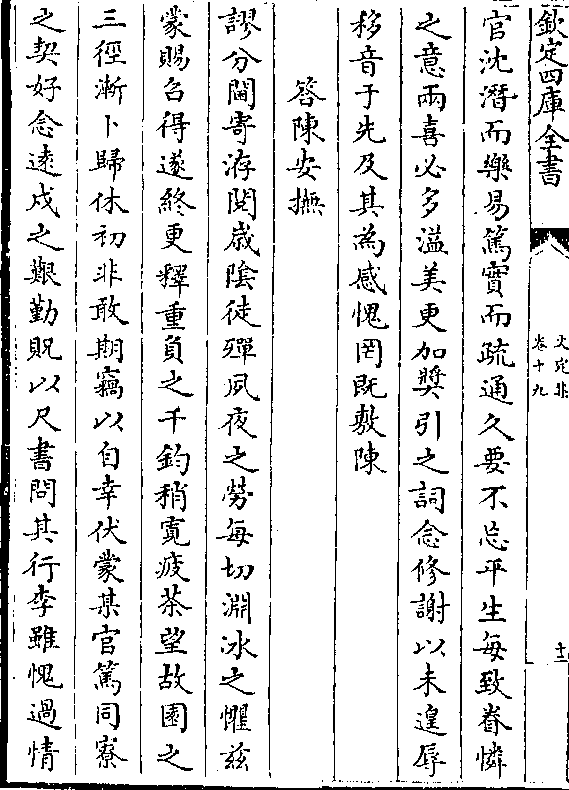 欽定四庫全書
文定集
卷十九
十一
官沈潛而樂易篤實而疏通久要不忘平生每致眷憐
之意兩喜必多溢美更加奬引之詞念修謝以未遑辱
移音于先及其為感愧罔既敷陳
答陳安撫
謬分閫寄洊閲歳陰徒殫夙夜之勞每切淵冰之懼兹
蒙賜召得遂終更釋重負之千鈞稍寛疲苶望故園之
三徑漸卜歸休初非敢期竊以自幸伏蒙某官篤同寮
之契好念逺戍之艱勤貺以尺書問其行李雖愧過情